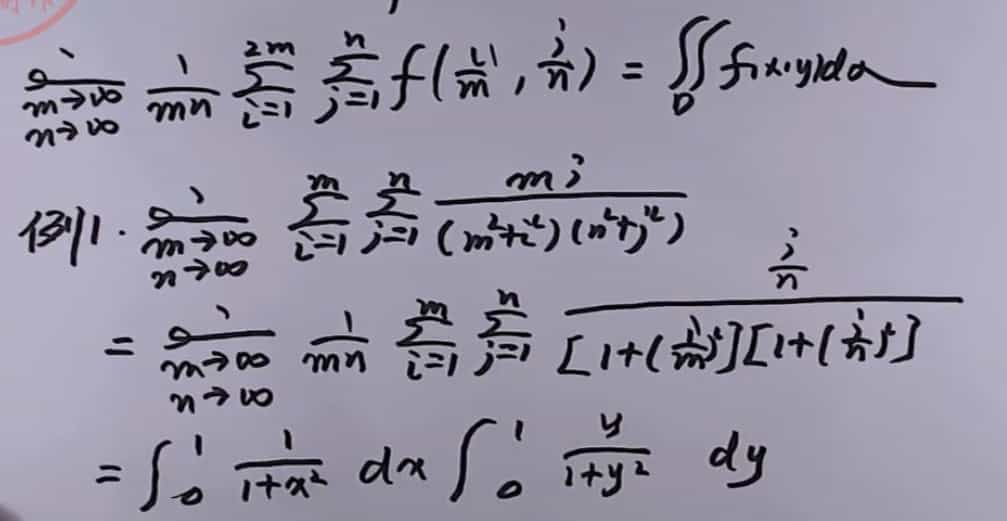 lim_{m→∞, n→∞} 1/(mn) ∑_{i=1}^{2m} ∑_{j=1}^{n} f(i/m, j/n) = ∬_D f(x,y)dσ
例1. lim_{m→∞, n→∞} ∑_{i=1}^{m} ∑_{j=1}^{n} mj/((m²+i²)(n²+j²))
= lim_{m→∞, n→∞} 1/(mn) ∑_{i=1}^{m} ∑_{j=1}^{n} (j/n)/([1+(i/m)²][1+(j/n)²])
= ∫_0^1 1/(1+x²) dx ∫_0^1 y/(1+y²) dy